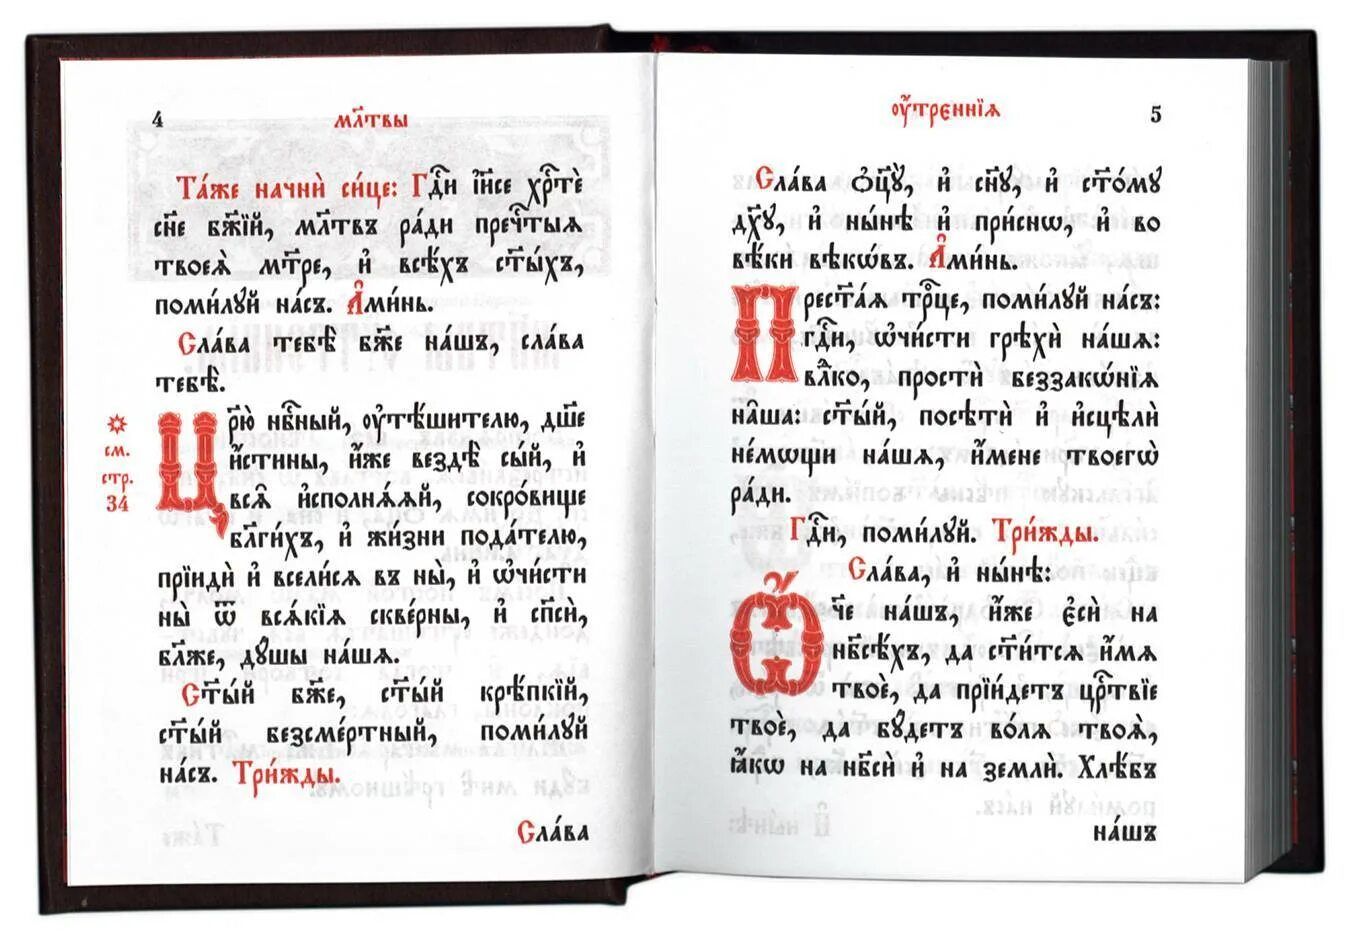 4
мл҃твы
Та́же начнѝ си́це: Гдⷭ҇и і҆и҃се хрⷭ҇тѐ
сн҃е бж҃їй, мл҃твъ ра́ди пречⷭ҇тыѧ
твоеѧ̀ мт҃ре, и҆ всѣ́хъ ст҃ы́хъ,
поми́лꙋй на́съ. А҆ми́нь.
Сла́ва тебѣ̀ бж҃е на́шъ, сла́ва
тебѣ̀.
✲
см.
стр.
34
Цр҃ю̀ нбⷭ҇ный, ᲂу҆тѣ́шителю, дш҃е
и҆́стины, и҆́же вездѣ̀ сы́й, и҆
всѧ̑ и҆сполнѧ́ѧй, сокро́вище
бл҃ги́хъ, и҆ жи́зни пода́телю,
прїидѝ и҆ всели́сѧ въ ны̀, и҆ ѡ҆чи́сти
ны̀ ѿ всѧ́кїѧ скве́рны, и҆ сп҃сѝ,
бл҃же, дꙋ́шы на́шѧ.
Ст҃ы́й бж҃е, ст҃ы́й крѣ́пкїй,
ст҃ы́й безсме́ртный, поми́лꙋй
на́съ. Три́жды.
Сла́ва
ᲂу҆́трєннїѧ
5
Сла́ва ѻ҆ц҃ꙋ̀, и҆ сн҃ꙋ, и҆ ст҃о́мꙋ
дх҃ꙋ, и҆ ны́нѣ и҆ при́снѡ, и҆ во
вѣ́ки вѣкѡ́въ. А҆ми́нь.
Прест҃а́ѧ трⷪ҇це, поми́лꙋй на́съ:
гдⷭ҇и, ѡ҆чи́сти грѣхѝ на́шѧ:
влⷣко, простѝ беззакѡ́нїѧ
на̑ша: ст҃ы́й, посѣтѝ и҆ и҆сцѣлѝ
не́мѡщи на́шѧ, и҆́мене твоегѡ̀
ра́ди.
Гдⷭ҇и, поми́лꙋй. Три́жды.
Сла́ва, и҆ ны́нѣ:
Ѻ҆́ч҃е на́шъ, и҆́же є҆сѝ на
нб҃сѣ́хъ, да ст҃и́тсѧ и҆́мѧ
твоѐ, да прїи́детъ црⷭ҇твїе
твоѐ, да бꙋ́детъ во́лѧ твоѧ̀,
ꙗ҆́кѡ на нб҃сѝ и҆ на землѝ. Хлѣ́бъ
на́шъ